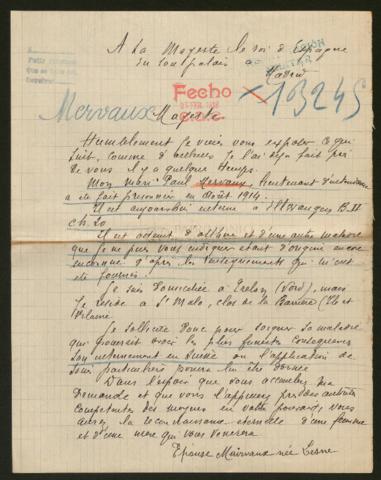 A Sa Majesté le roi d'Espagne
en son palais à
Madrid
Fecho
13245
Mervaux Majesté
Humblement je viens vous exposer ce qui
suit, comme d'ailleurs je l'ai déjà fait près
de vous il y a quelque temps.
Mon mari Paul Mervaux, lieutenant d'
a été fait prisonnier en Août 1914.
Il est aujourd'hui interné à B. II
Ch. 20
Il est atteint d'albumine et d'une autre maladie
que je ne puis vous indiquer étant d'origine
inconnue d'après les renseignements qui m'ont
été fournis.
Je suis domiciliée à (Nord), mais
je réside à St Malo, clos de la (Ille et
Vilaine
Je sollicite donc pour soigner sa maladie
qui pourrait avoir les plus funestes conséquences
son internement en Suisse ou l'application de
soins particuliers pourra lui être donnée
Dans l'espoir que vous accueillerez ma
demande et que vous l'appuierez près des autorités
compétentes des moyens en votre pouvoir, vous
aurez la reconnaissance éternelle d'une femme
et d'une mère qui vous vénérera
Epouse née Lesne